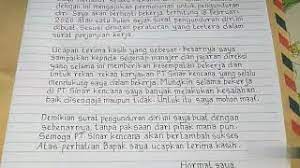 dan akan berhenti bekerja terhitung 18 Februari
2020 atau satu bulan sejak surat pengunduran diri ini
dibuat. Sesuai dengan peraturan yang tertera dalam
surat perjanjian kerja.
Ucapan terima kasih yang sebesar-besarnya saya
sampaikan kepada segenap manajer dan jajaran direksi
yang selama ini memberikan kesempatan bekerja dan
untuk rekan-rekan karyawan PT Sinar Kencana yang
membantu saya dalam bekerja. Mungkin selama bekerja
di PT Sinar kencana saya banyak melakukan kesalahan
baik disengaja maupun tidak. Untuk itu saya mohon
maaf.
Demikian surat pengunduran diri ini saya buat dengan
sebenarnya, tanpa paksaan dari pihak mana pun.
Semoga PT Sinar kencana akan bertambah sukses
Atas perhatian Bapak saya ucapkan terima kasih.
Hormat saya,